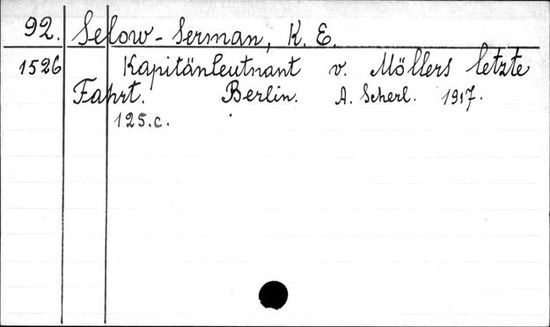 92. Selow-Serman, K. E.
1526 Kapitänleutnant v. Möllers letzte
Fahrt. Berlin. A. Scherl. 1917.
125.c.